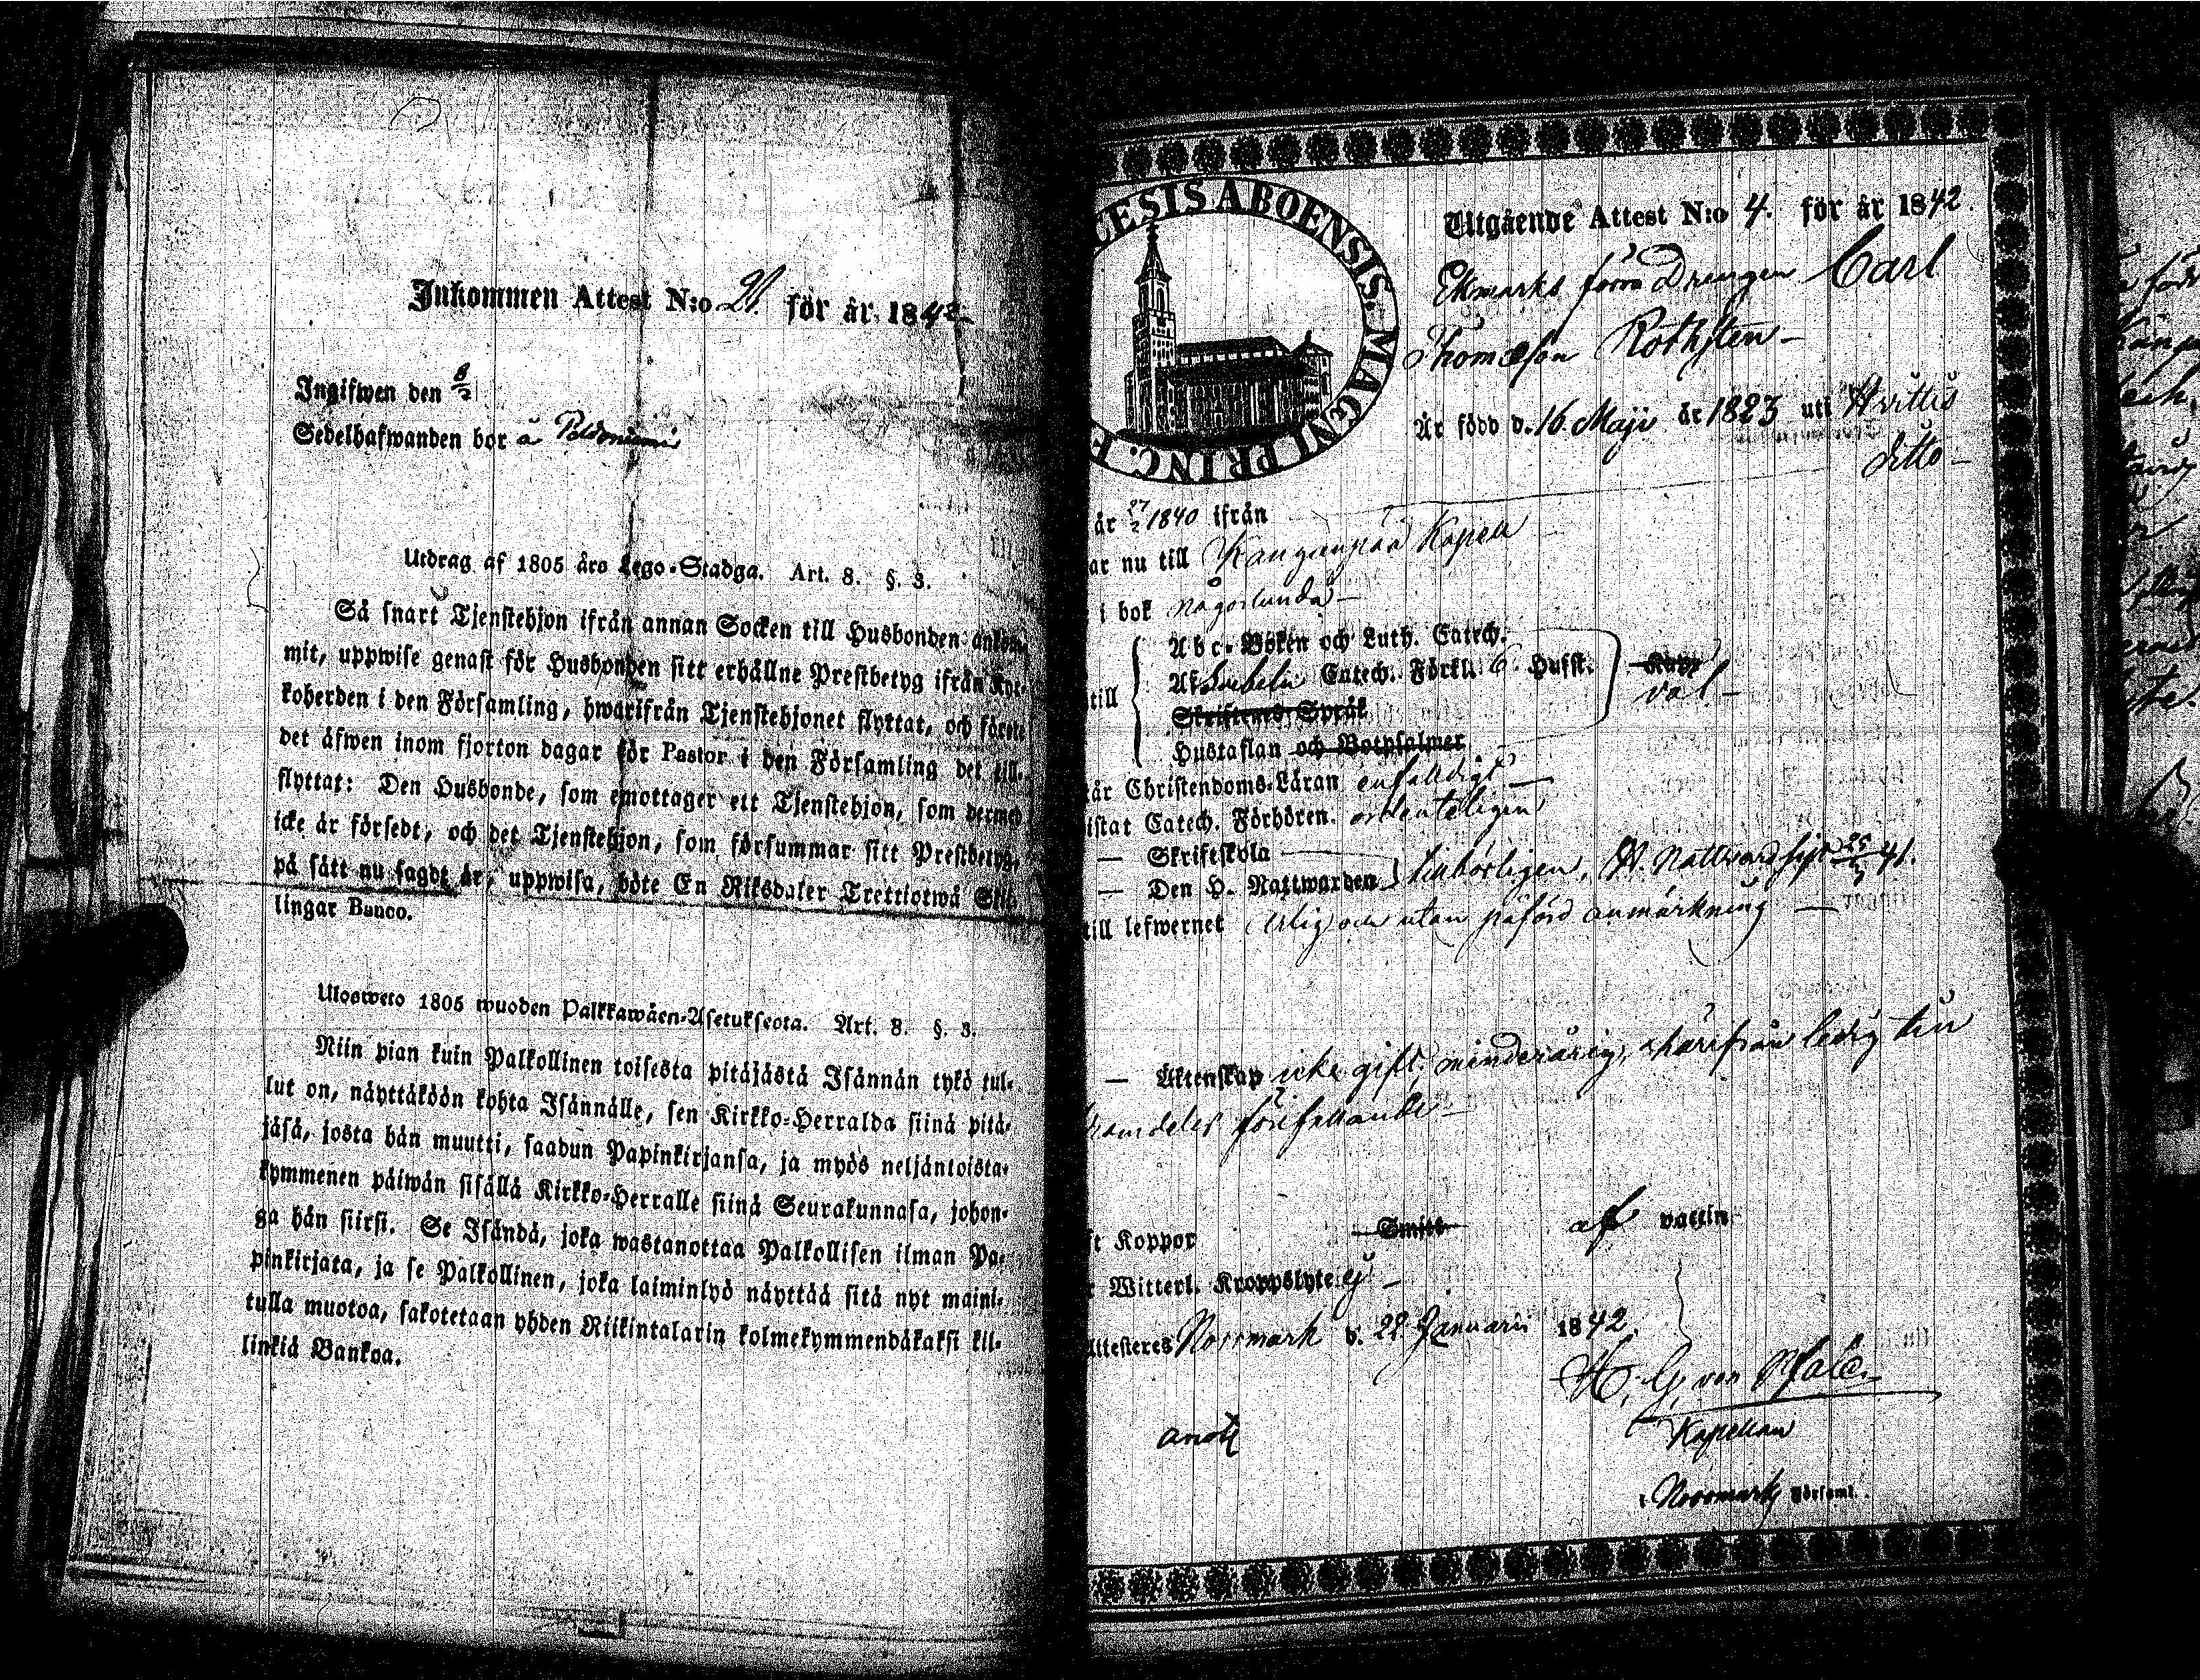 Inkommen Attest N:o 21. för år 1842
Ingifwen den 6/2
Sedelhafwanden bor å
Utdrag af 1805 års Lego-Stadga. Art. 8. §. 3.
Så snart Tjenstehjon ifrån annan Socken till Husbonden ankom-
mit, uppwise genast för Husbonden sitt erhållne Prestbetyg ifrån Kyr-
koherden i den Församling, hwarifrån Tjenstehjonet flyttat, och förete
det äfwen inom fjorton dagar för Pastor i den Församling det till-
flyttat: Den Husbonde, som emottager ett Tjenstehjon, som dermed
icke är försedt, och det Tjenstehjon, som försummar sitt Prestbetyg,
på sätt nu sagdt är, uppwisa, böte En Riksdaler Trettiotwå Skil-
lingar Banco.
Ulosweto 1805 wuoden Palkkawäen-Asetuksesta. Art. 8. §. 3.
Niin pian kuin Palkollinen toisesta pitäjästä Isännän tykö tul-
lut on, näyttäköön kohta Isännälle, sen Kirkko-Herralda siinä pitä-
jäsä, josta hän muutti, saadun Papinkirjansa, ja myös neljäntoista-
kymmenen päiwän sisällä Kirkko-Herralle siinä Seurakunnasa, johon-
ga hän siirsi. Se Isändä, joka wastanottaa Palkollisen ilman Pa-
pinkirjata, ja se Palkollinen, joka laiminlyö näyttää sitä nyt maini-
tulla muotoa, sakotetaan yhden Riikintalarin kolmekymmendäkaksi kil-
linkiä Bankoa.
ESIS ABOENSIS. MAGNI PRINC. F
Utgående Attest N:o 4. för år 1842.
Ekmarks förra Drengen Carl
Thomasson Rothsten
Är född d. 16 Maji år 1823 uti Hvittis
ditto
år 27/2 1840 ifrån
ar nu till Kanganpää Kapell
i bok någorlunda
Abc-Boken och Luth. Catech.
till Af Sebelii Catech. Förkl. 6. Hufst. Kapp
val
Skriftenes Språk
Hustaflan och Botpsalmer
tår Christendoms-Läran enfalldigt
istat Catech. Förhören. ordenteligen
Skriftskola
Den H. Nattwarden tillbörligen, H. Nattvard sist 25/ 41.
till lefwernet ärlig och utan påförd anmärkning
Äktenskap icke gift, minderårig, härifrån ledig till
framdeles förefallande
t Koppor Smitt af vaccin
r Witterl. Kroppslyte ej
Attesteres Norrmark d. 22 Januarii 1842
H. G. von Pfaler
Kapellan
i Norrmark Församl.